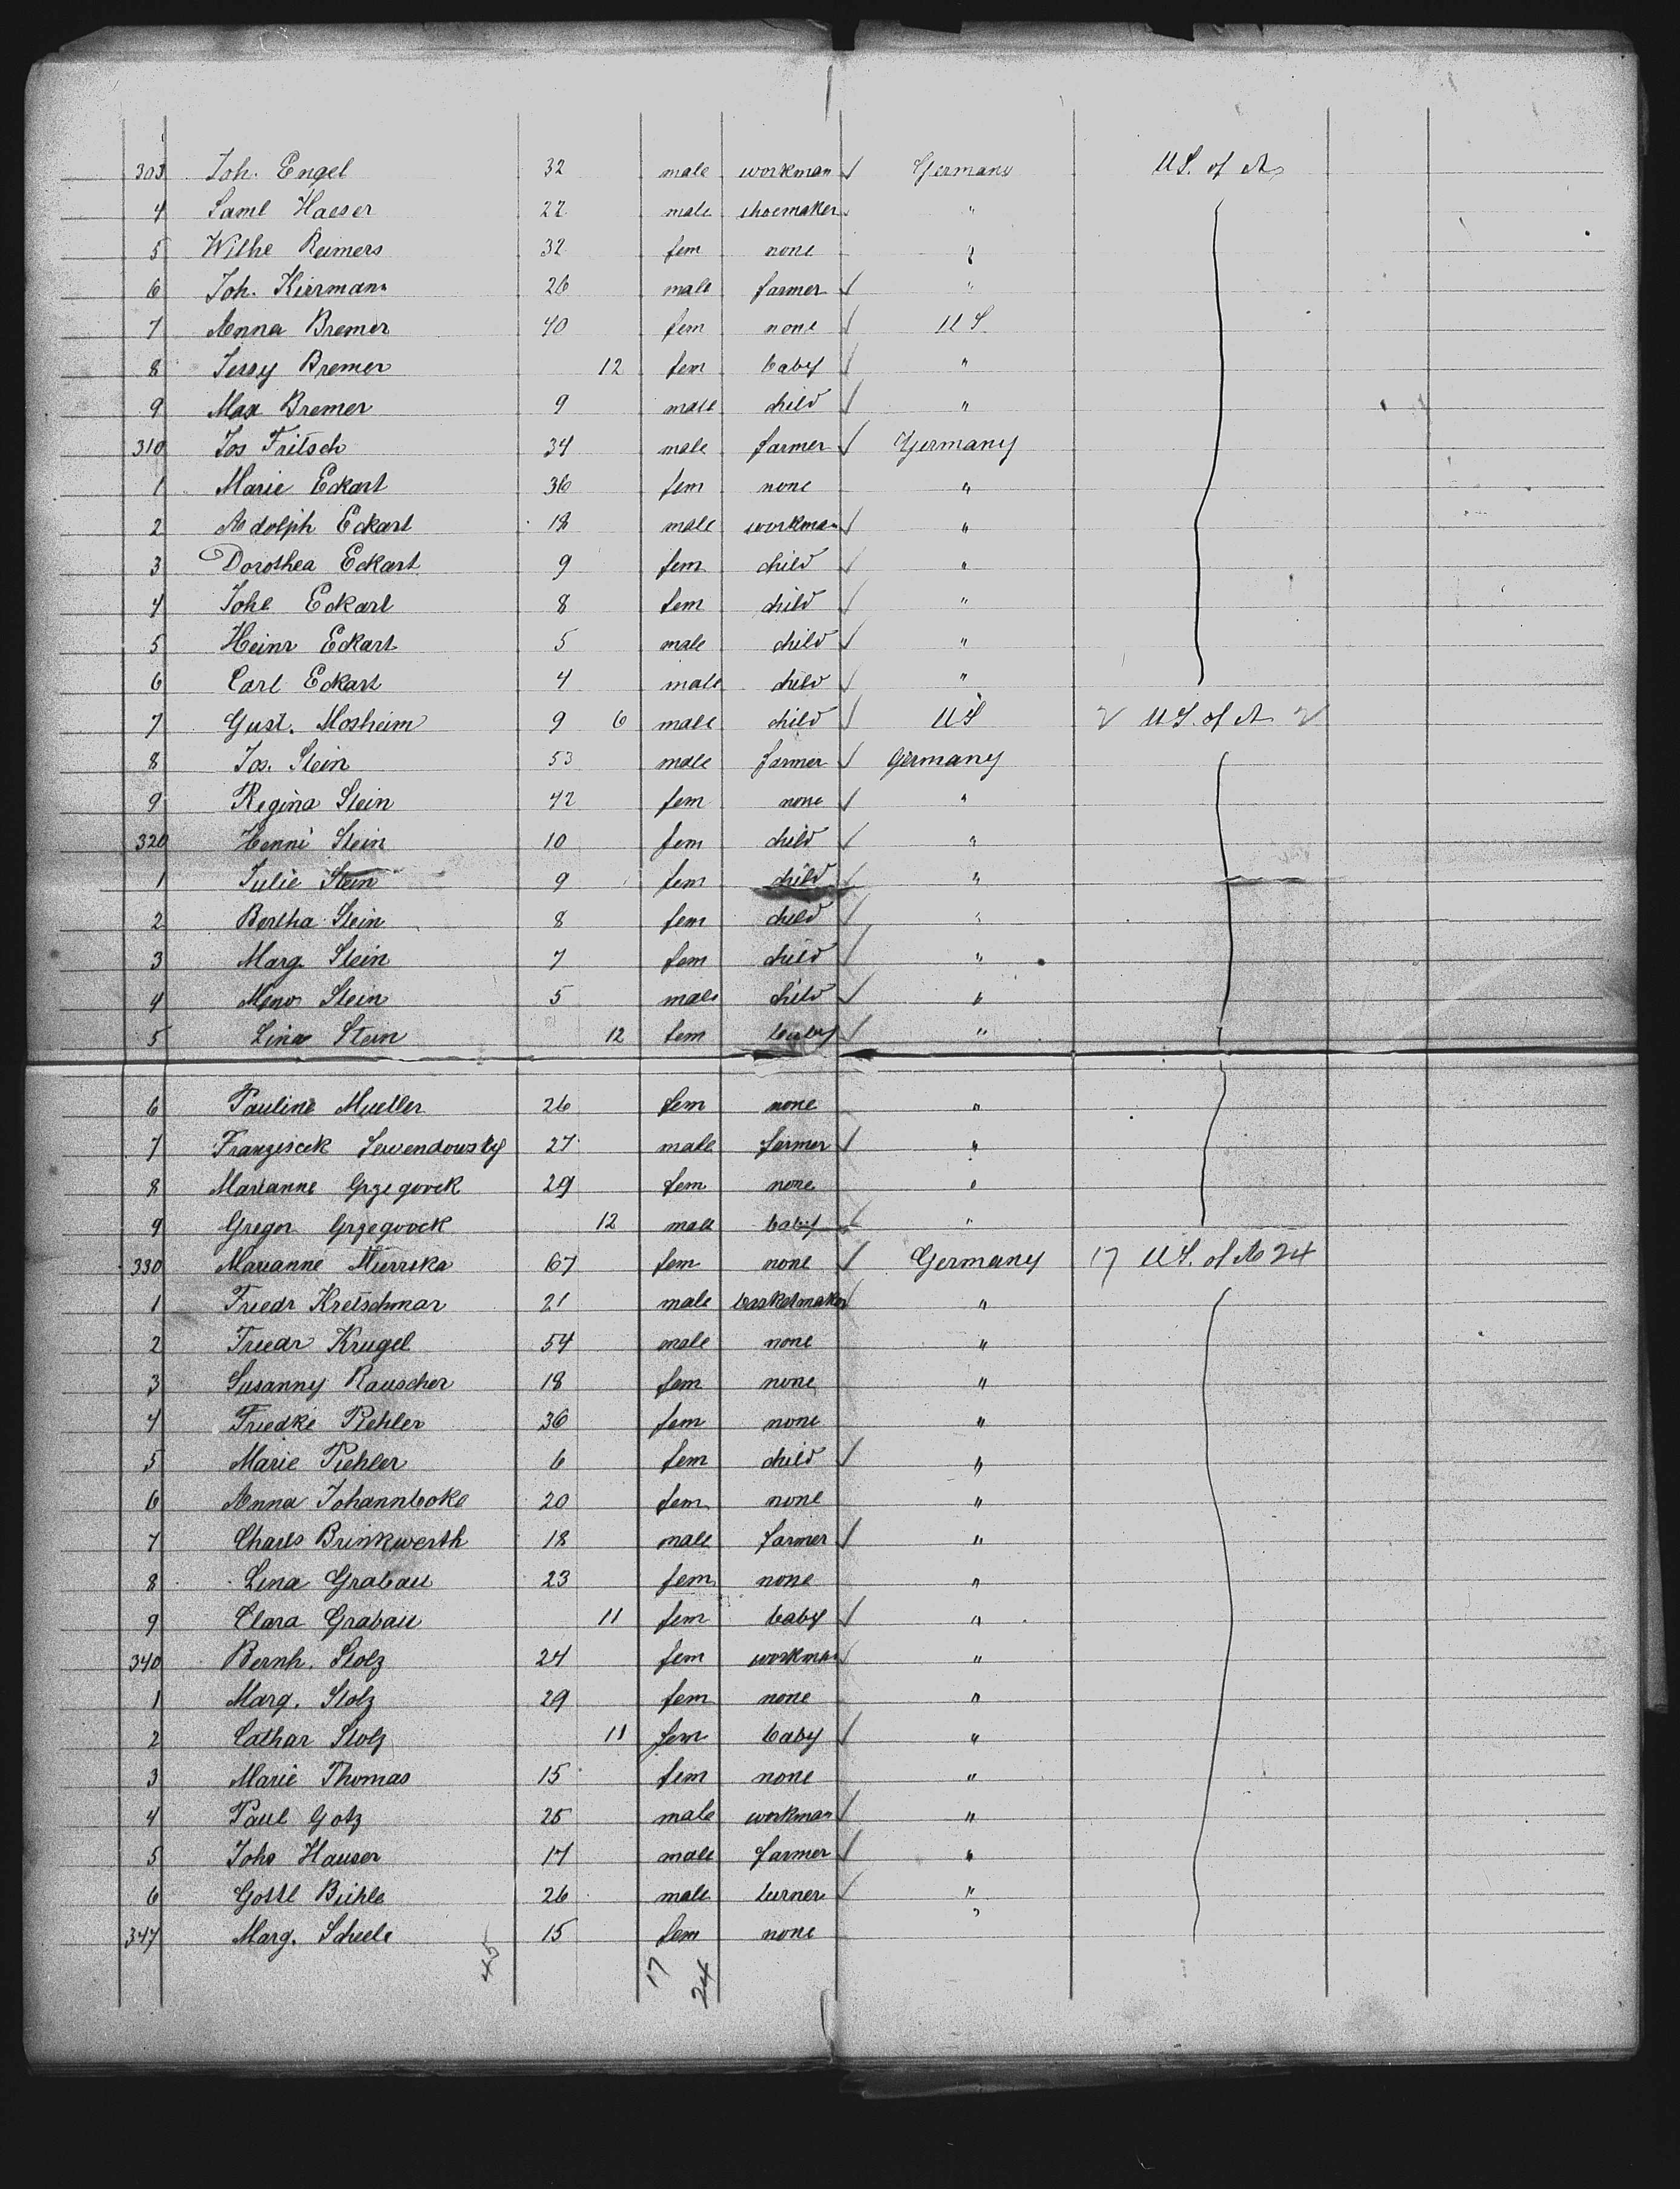 303 Joh. Engel 32 male workman Germany U.S. of A
4 Saml Haeser 22 male shoemaker "
5 Wilhe Reimers 32 fem none "
6 Joh. Kiermann 26 male farmer "
7 Anna Bremer 40 fem none U S
8 Jessy Bremer 12 fem baby "
9 Max Bremer 9 male child "
310 Jos Fritsch 34 male farmer Germany
1 Marie Eckart 36 fem none "
2 Adolph Eckart 18 male workman "
3 Dorothea Eckart 9 fem child "
4 Johe Eckart 8 fem child "
5 Heinr Eckart 5 male child "
6 Carl Eckart 4 male child "
7 Gust. Mosheim 9 6 male child U S U.S. of A
8 Jos. Stein 53 male farmer Germany
9 Regina Stein 42 fem none "
320 Henni Stein 10 fem child "
1 Julie Stein 9 fem child "
2 Bertha Stein 8 fem child "
3 Marg. Stein 7 fem child "
4 Stein 5 male child "
5 Lina Stein 12 fem baby "
6 Pauline Mueller 26 fem none "
7 Franziscek Lewendowsky 27 male farmer "
8 Marianne Grzegorek 29 fem none "
9 Gregor Grzegorek 12 male baby "
330 Marianne 67 fem none Germany 17 U.S. of A 24
1 Friedr Kretschmar 21 male basketmaker "
2 Friedr Krugel 54 male none "
3 Susanny Rauscher 18 fem none "
4 Friedke Piehler 36 fem none "
5 Marie Piehler 6 fem child "
6 Anna Johannboke 20 fem none "
7 Charles Brinkwerth 18 male farmer "
8 Lina Grabau 23 fem none "
9 Clara Grabau 11 fem baby "
340 Bernh. Stolz 24 fem workman "
1 Marg. Stolz 29 fem none "
2 Cathar Stolz 11 fem baby "
3 Marie Thomas 15 fem none "
4 Paul Gotz 25 male workman "
5 Johs Hauser 17 male farmer "
6 Gottl Bihle 26 male turner "
347 Marg. Scheele 15 fem none "
45 17 24